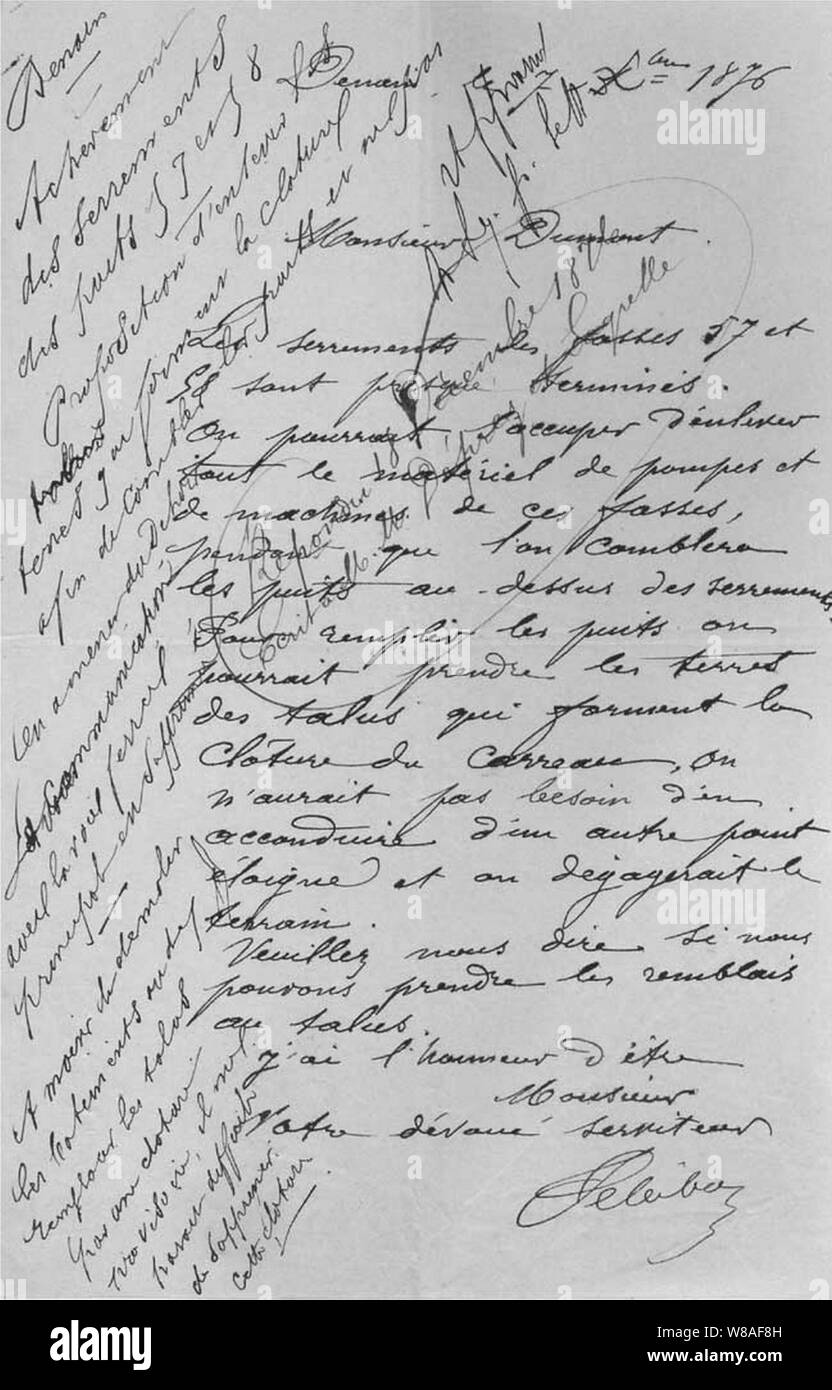 Denain Xbre 1876
Monsieur Dumont.
Les serrements des fosses 57 et
sont presque terminés.
On pourrait s'occuper d'enlever
tout le matériel de pompes et
de machines de ces fosses,
pendant que l'on comblera
les puits au-dessus des serrements.
Pour remplir les puits on
pourrait prendre les terres
des talus qui forment la
clôture du carreau, on
n'aurait pas besoin d'en
acconduire d'un autre point
éloigné et on dégagerait le
terrain.
Veuillez nous dire si nous
pouvons prendre les remblais
au talus.
j'ai l'honneur d'être
Monsieur
Votre dévoué serviteur
Denain
Achèvement
des serrements
des puits 57 et 58
Proposition d'enlever les
terres qui forment la cloture
afin de combler les puits
avec la voie ferrée
principal en
A moins de démolir
les batiments ou de
remplacer les talus
par une cloture
provisoire, il me
parait difficile
de supprimer
cette cloture
Répondu Décembre 187
Ecrit à M.
alamy
alamy
Image ID: W8AF8H
www.alamy.com